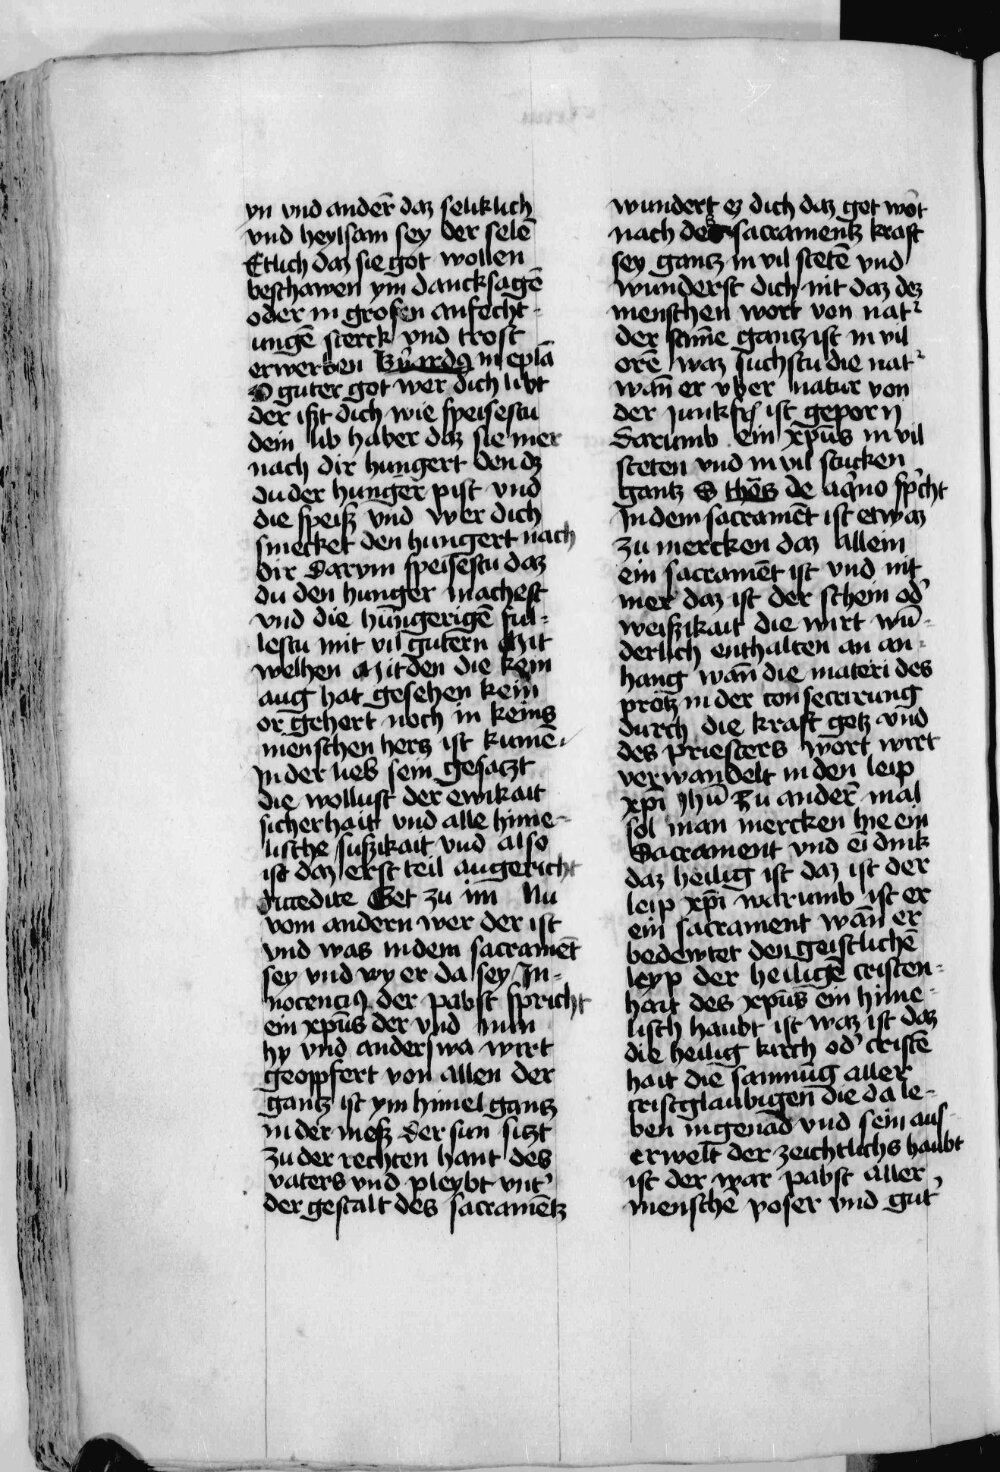 yn vnd anderñ daz seliklich
vnd heylsam sey der selē
Etlich daz sie got wollen
beschawen ym dancksagē
oder in grosen anfecht-
ungē sterck vnd trost
erwerben in epl̄a
O guter got wer dich libt
der iszt dich wie speisestu
dein lib haber daz sie mer
nach dir hungert den dz
du der hunger pist vnd
die speisz vnd wer dich
smecket den hungert nach
dir Darvm speisestu daz
du den hunger machest
vnd die hūngerigē ful-
lestu mit vil gutern Mit
welhen Mitden die kein
aug hat gesehen kein
or gehert noch in keins
menschen hertz ist kumē
In der lieb sein gesatzt
die wollust der ewikait
sicherhait vnd alle hime-
lische suszikait vnd also
ist daz erst teil auszgericht
Accedite Get zu im Nu
vom andern wer der ist
vnd was in dem sacramēt
sey vnd wy er da sey In-
nocenciꝰ der pabst spricht
ein xp̄us der vnd nun
hy vnd anderswa wirt
geopfert von allen der
gantz ist ym himel gantz
in der mesz der sun sitzt
zu der rechten hant des
vaters vnd pleybt vnt'
der gestalt des sacramētz
wundert ez dich daz got wōt
nach des sacramentz kraft
sey gantz in vil stetē vnd
wunderst dich nit daz dez
menschen wort von nat'
der stim̄e gantz ist in vil
orē waz suchstu die nat'
wān er vber natur von
der junkfr̄ ist geporn
Darumb ein xp̄us in vil
steten vnd in vil stucken
gantz S thōs de aq̄no sp̄cht
In dem sacramēt ist etwaz
zu mercken daz allein
ein sacramēt ist vnd nit
mer daz ist der schein od'
weiszikait die wirt wū-
derlich enthalten an an-
hang wān die materi des
protz in der consecrirung
durch die kraft gotz vnd
des priesters wort wirt
verwandelt in den leip
xp̄i ih̄u Zu anderñ mal
sol man mercken hie ein
Sacrament vnd ei dink
daz heilig ist daz ist der
leip xp̄i warumb ist er
ein sacrament wān er
bedewtet den geistlichē
leyp der heiligē cristen-
hait des xp̄us ein hime-
lisch haubt ist waz ist daz
die heilig kirch od' cristē
hait die samnūg aller
cristglaubigen die da le-
ben in genad vnd sein aus-
erwelt der zeichtlichs haubt
ist der war pabst aller
menschē poser vnd gut'